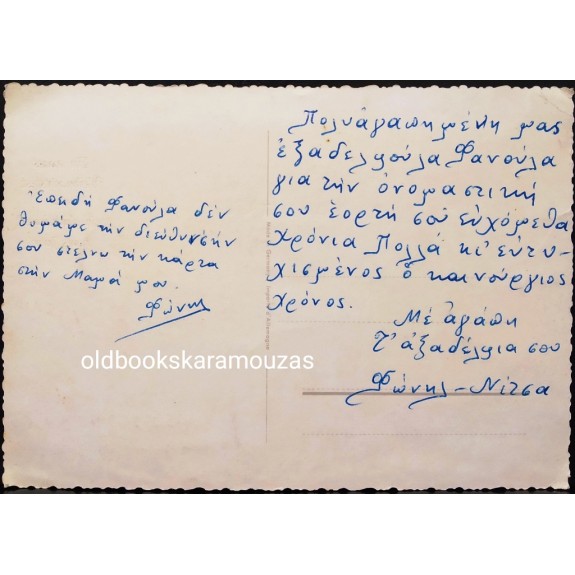 Ἐπειδή Φανούλα δέν
θυμᾶμε τήν διεύθυνσήν
σου στέλνω τήν κάρτα
στήν Μαμά μου.
Φώνης
Πολυάγαπημένη μας
ἐξαδελφούλα Φανούλα
για τήν ὀνομαστική
σου ἑορτή σοῦ εὐχόμεθα
Χρόνια Πολλά κι' εὐτυ-
χισμένος ὁ καινούργιος
χρόνος.
Μέ ἀγάπη
Τ' ἀξαδέλφια σου
Φώνης - Νίτσα
oldbookskaramouzas